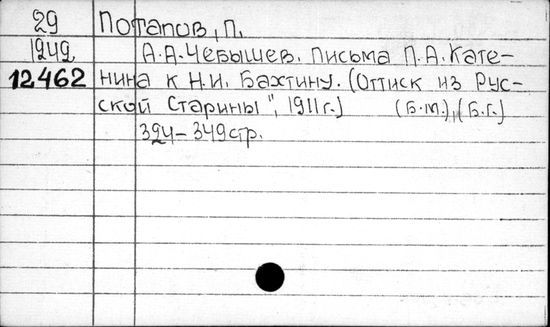 29 Потапов, П.
1949 А.А. Чебышев. Письма П.А. Кате-
12462 нина к Н.И. Бахтину. (Оттиск из Рус-
ской Старины", 1911 г.) (Б.м.), (Б.г.)
324-349 стр.